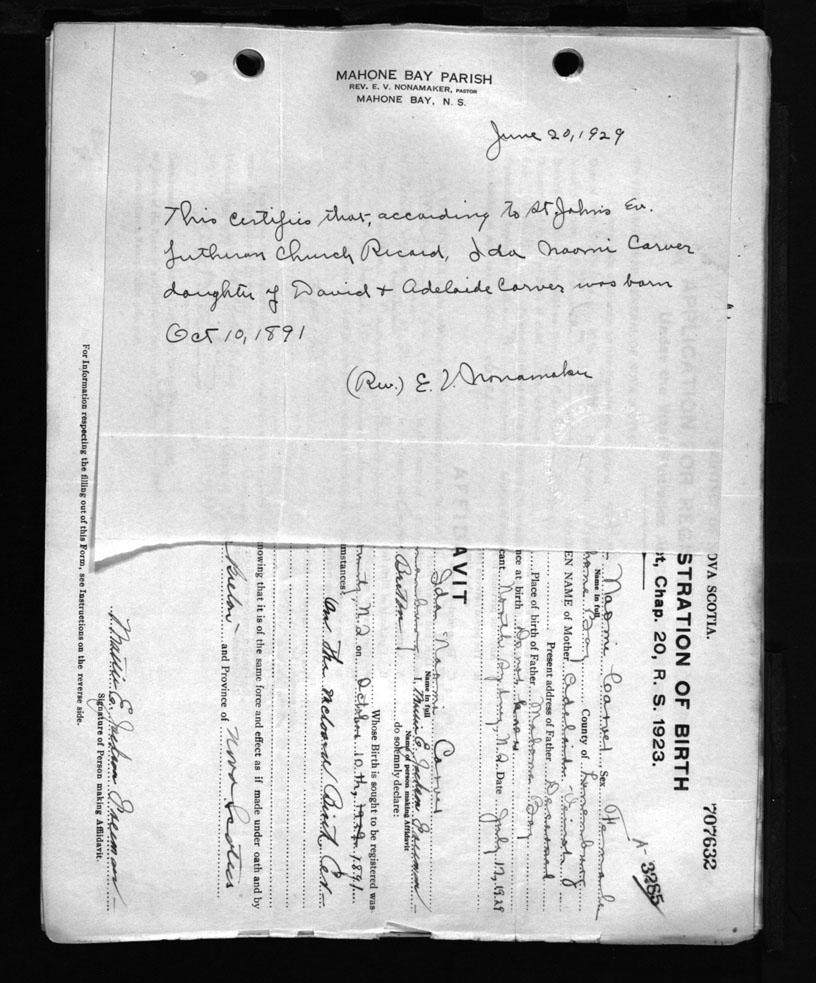 MAHONE BAY PARISH
REV. E. V. NONAMAKER, PASTOR
MAHONE BAY, N. S.
June 20, 1929
This certifies that, according to St Johns Ev.
Lutheran Church Record, Ida Naomi Carver
daughter of David + Adelaide Carver was born
Oct 10, 1891
(Rev.) E. V. Nonamaker
OVA SCOTIA.
707632
A- 3285
STRATION OF BIRTH
ct, Chap. 20, R. S. 1923.
Naomi Carver Sex Female
Name in full
hone Bay County of Lunenburg
EN NAME of Mother Adelaide
Present address of Father Deceased
Place of birth of Father Mahone Bay
nce at birth Do not know
cant North Sydney, N.S. Date July 12, 1929
AFFIDAVIT
Ida Naomi Carver
Name in full
Lunenburg I,
Name of person making Affidavit
Breton do solemnly declare:
Whose Birth is sought to be registered was
N.S on October 10th, 1891
mstances:
nowing that it is of the same force and effect as if made under oath and by
Breton and Province of Nova Scotia
Signature of Person making Affidavit.
For Information respecting the filling out of this Form, see Instructions on the reverse side.